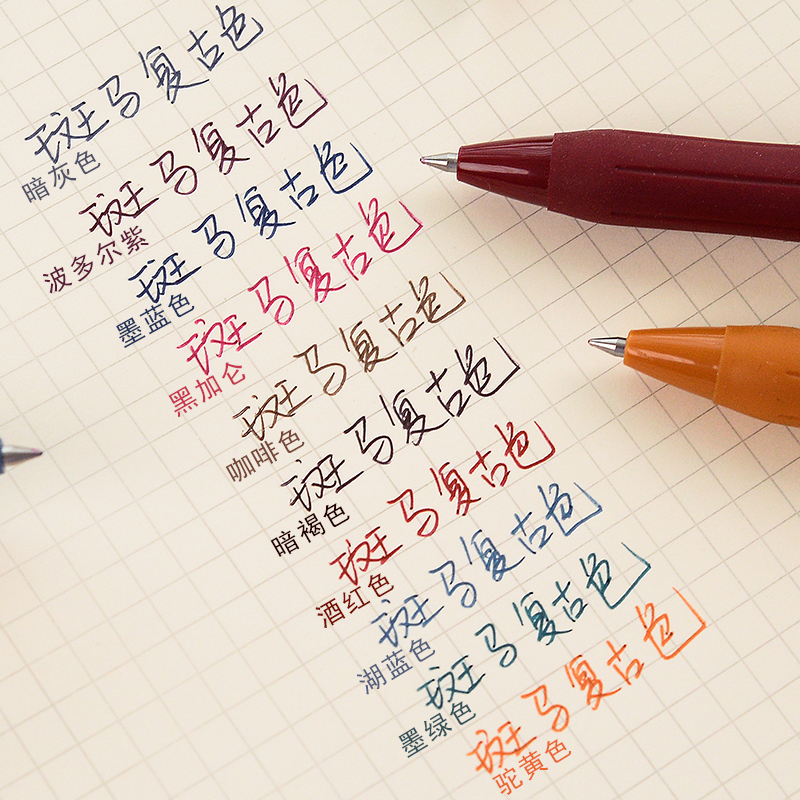 斑马复古色
暗灰色
斑马复古色
波多尔紫
斑马复古色
墨蓝色
斑马复古色
黑加仑
斑马复古色
咖啡色
斑马复古色
暗褐色
斑马复古色
酒红色
斑马复古色
湖蓝色
斑马复古色
墨绿色
斑马复古色
驼黄色